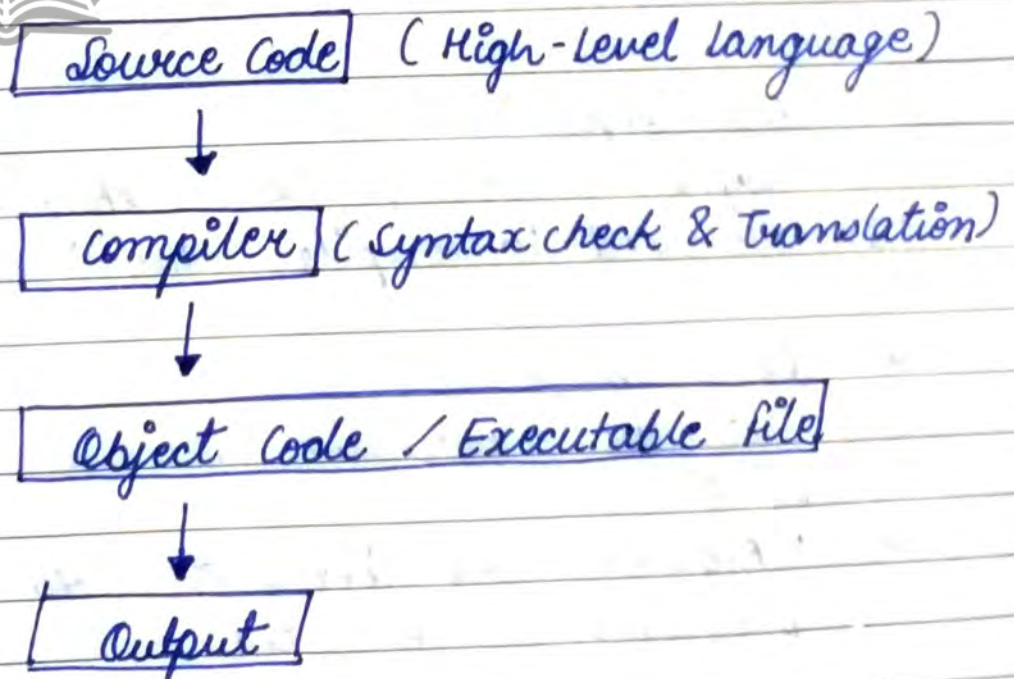 Source Code (High-Level Language)
Compiler (Syntax check & Translation)
Object Code / Executable file
Output